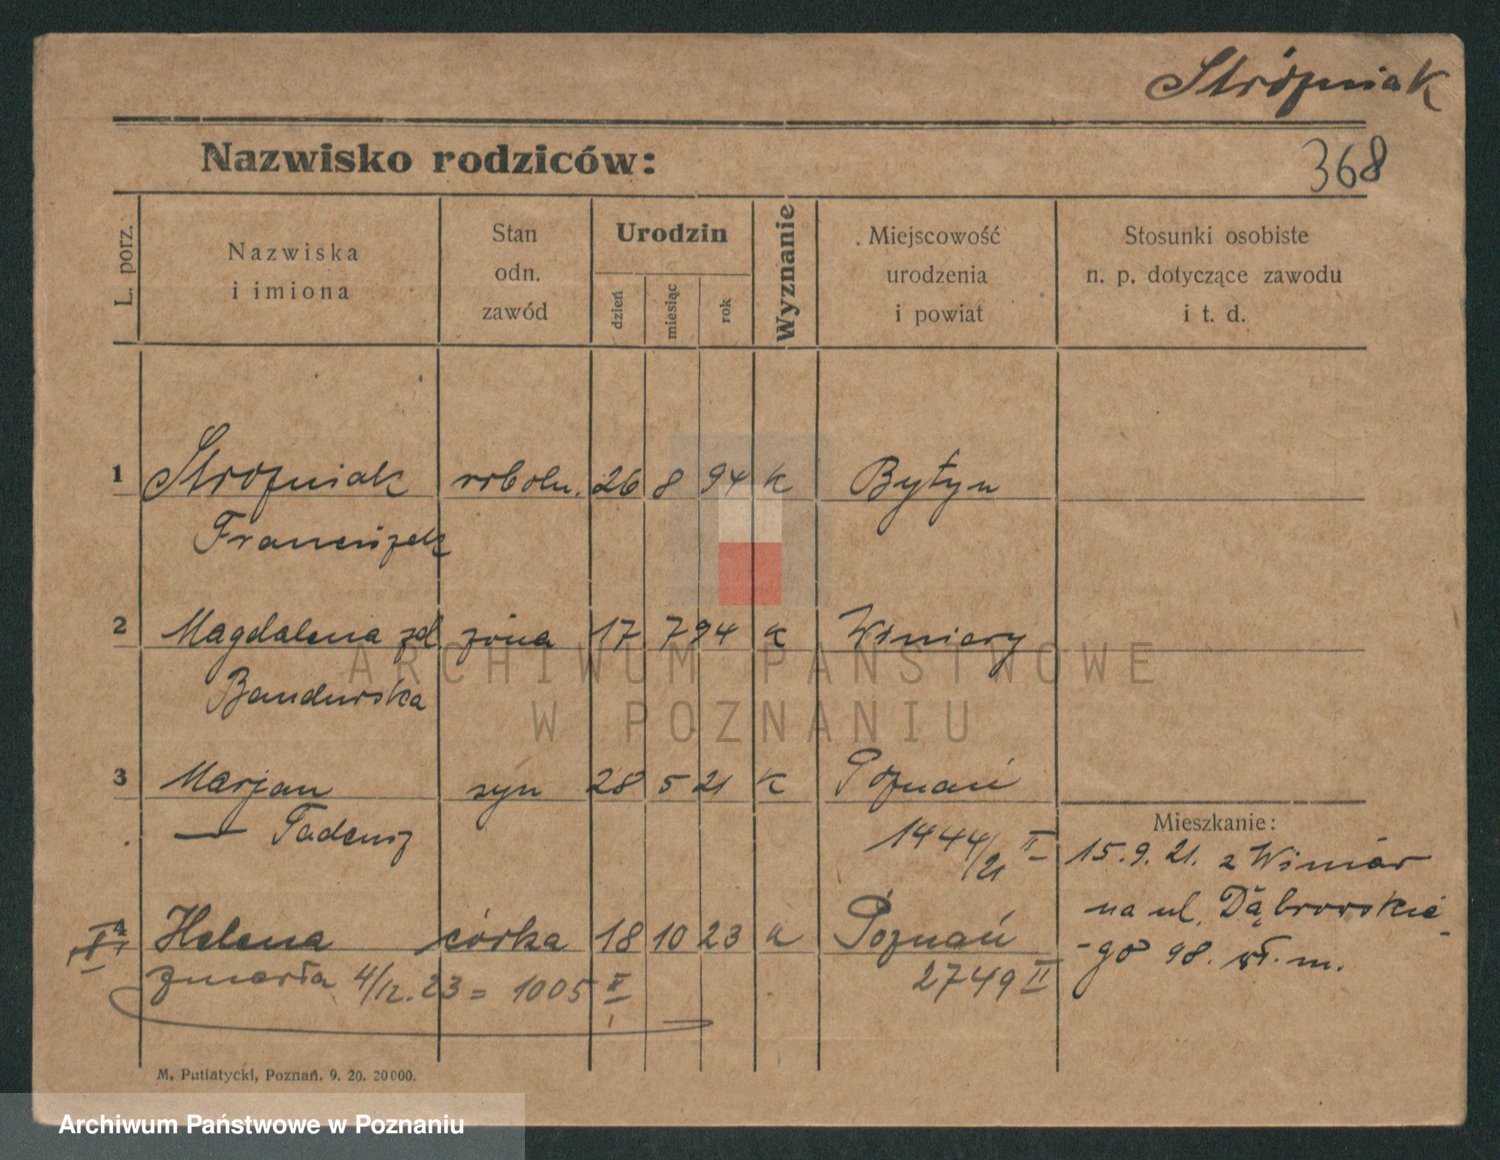 Stróżniak
Nazwisko rodziców:
368
L. porz.
Nazwiska
i imiona
Stan
odn.
zawód
Urodzin
dzień
miesiąc
rok
Wyznanie
Miejscowość
urodzenia
i powiat
Stosunki osobiste
n. p. dotyczące zawodu
i t. d.
1 Strożniak robotn. 26 8 94 k Bytyn
Franciszek
2 Magdalena zd żona 17 7 94 k Winiary
Bandurska
ARCHIWUM PAŃSTWOWE
W POZNANIU
3 Marjan syn 28 5 21 k Poznań
— Tadeusz 1444/21 II
Mieszkanie:
15.9.21. z Winiar
na ul. Dąbrowskie-
-go 98. wł. m.
4 Helena córka 18 10 23 k Poznań
zmarła 4/12.23 = 1005 II 2749 II
M. Putiatycki, Poznań. 9. 20. 20000.
Archiwum Państwowe w Poznaniu